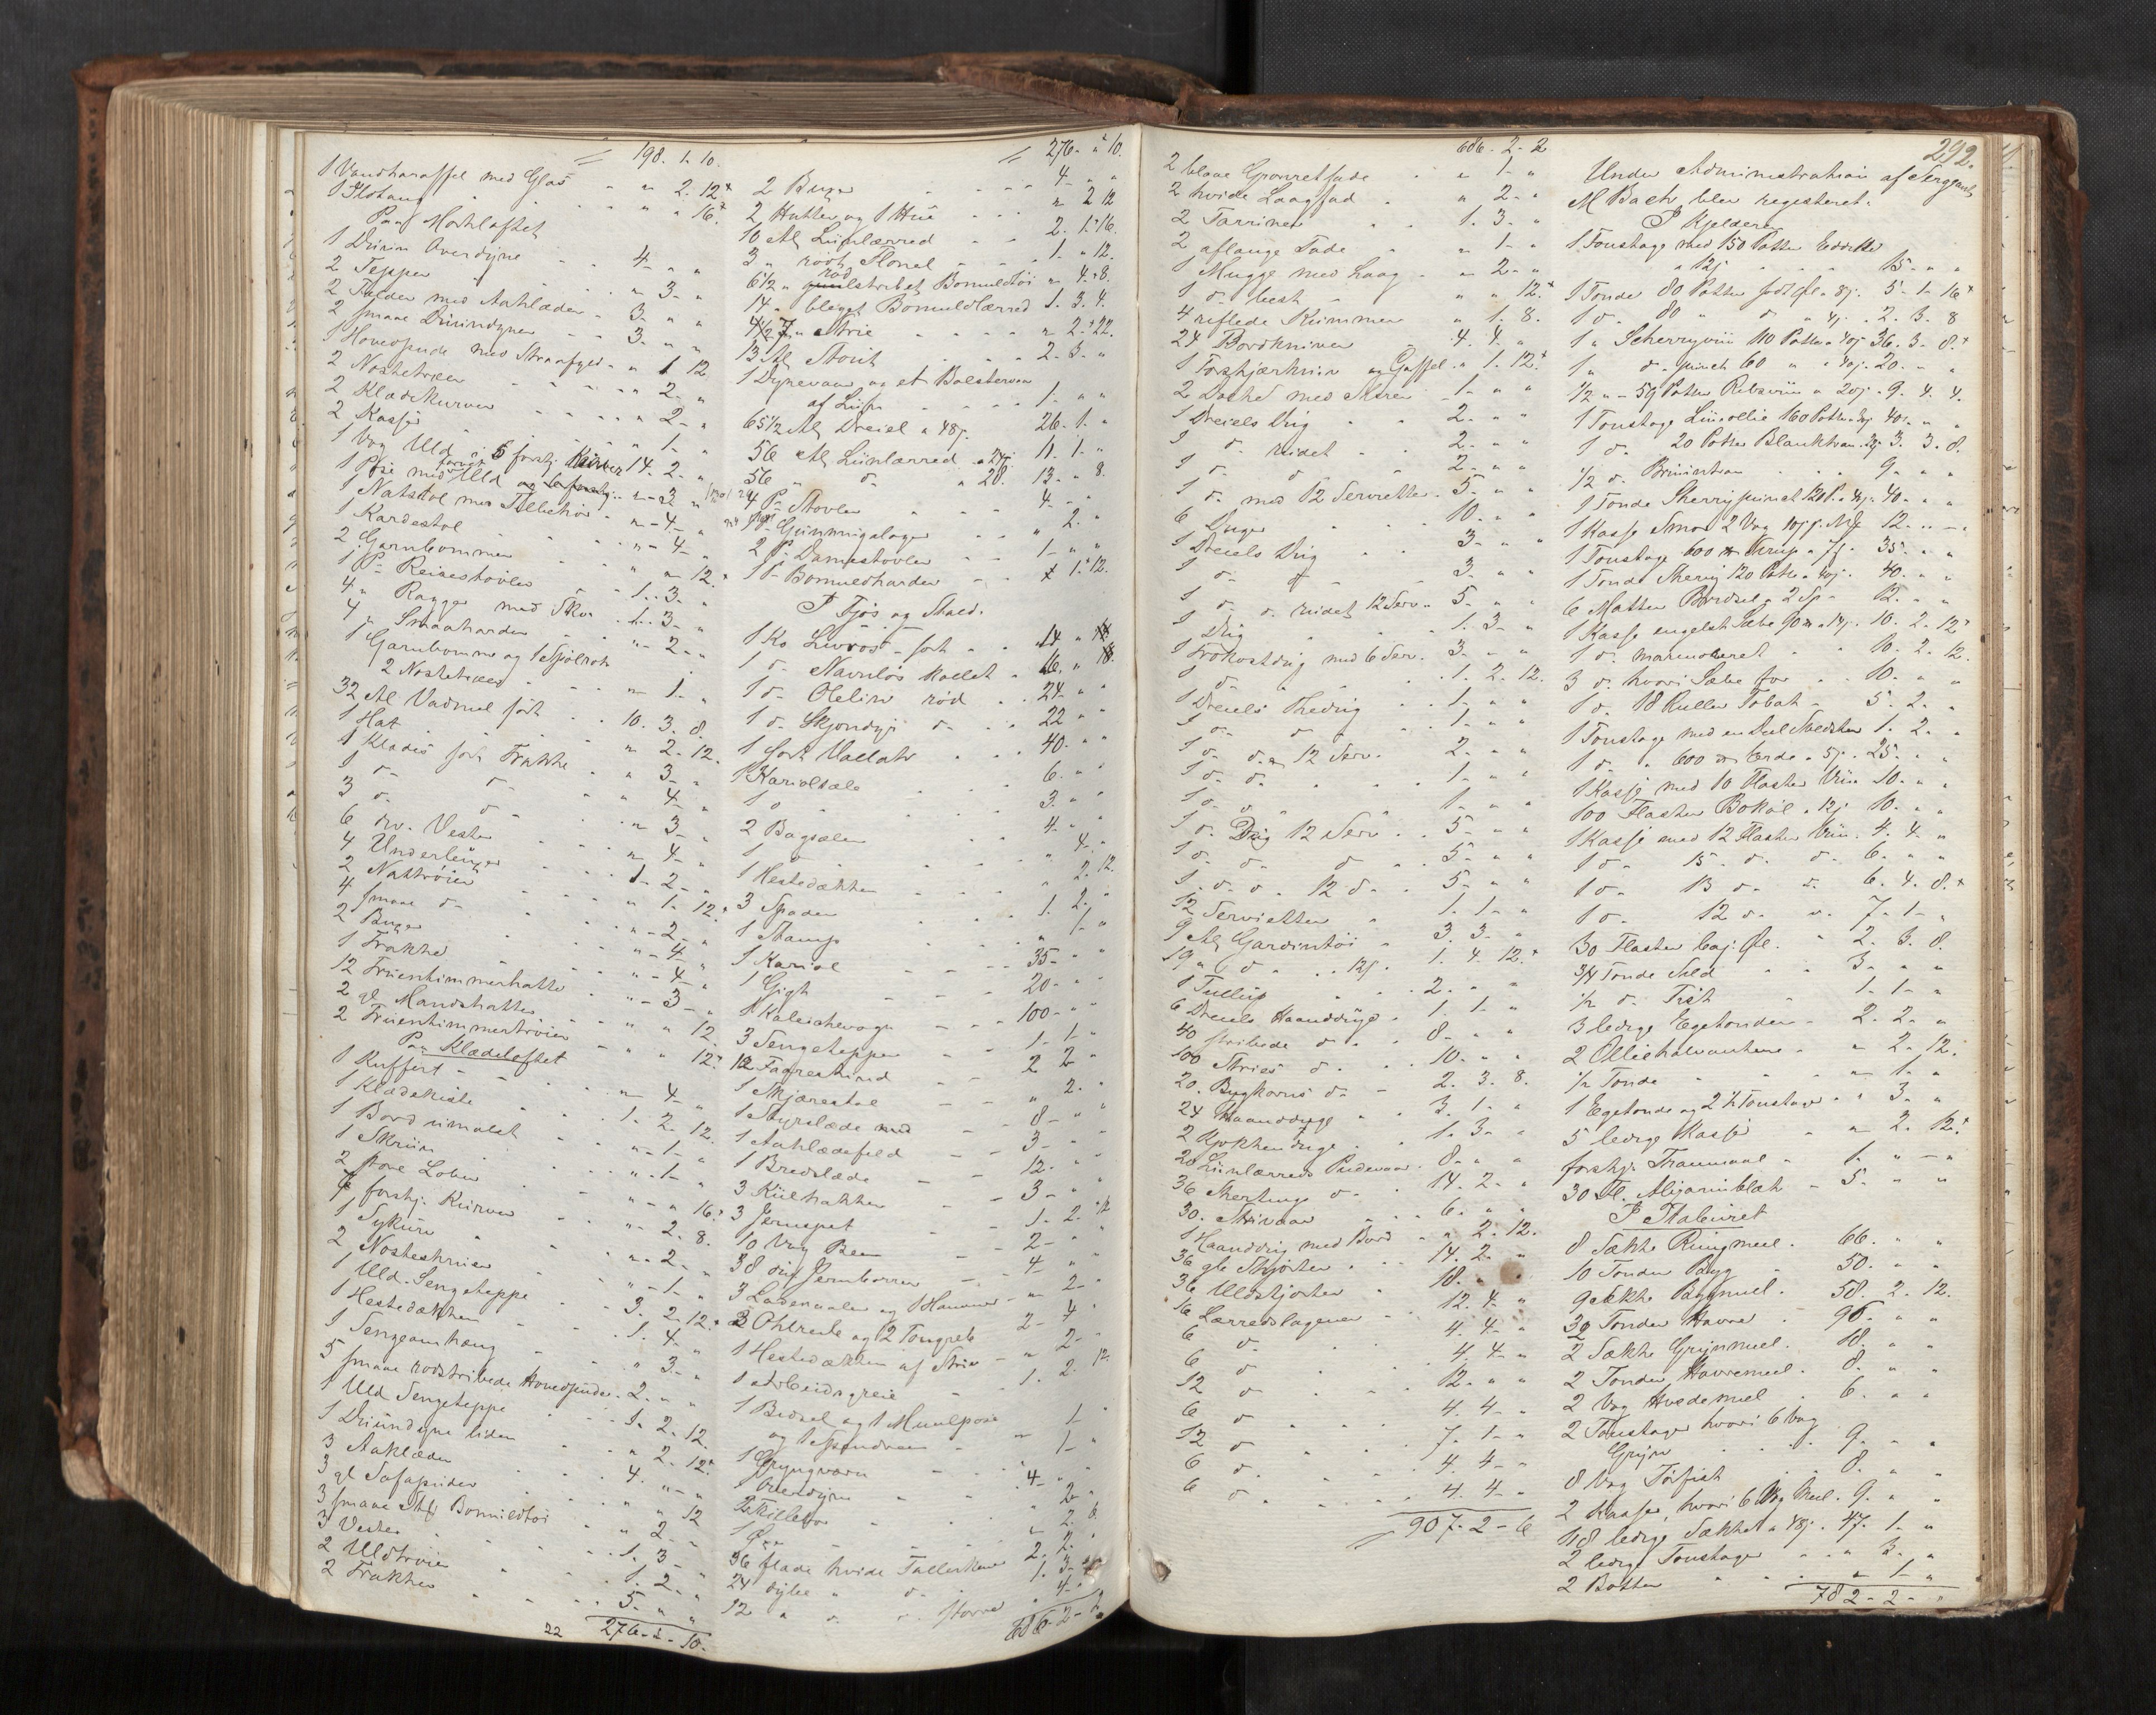 198. 1. 10.
1 Vandkaraffel med Glas " 2. 12
1 Ildtang " " 16
Paa Mørkloftet
1 Duuns Overdyne 4 " "
2 Tepper " 3 "
2 Fælder med Aaklæder 3 " "
2 smaae Duundyner 3 " "
1 Hovedpude med Straafyld " 1 12
2 Nøstetræer 2 "
2 Klædekurver 2 "
2 Kasser 1 "
1 Vog Uld i 5 forskj. Kurver 14. 2 "
1 Pose med farvet Uld " 3 "
1 Natstol med Tilbehør " 4 "
1 Kardestol " 4 "
2 Garnbommer " " 12
1 P. Reisestøvler 1. 3 "
4 " Ragger med Skoe 1. 3 "
4 " Smaakarder " 2 "
1 Garnbomme og 1 Spolrok
2 Nøstetræer " 1 "
32 Al Vadmel sort 10. 3. 8.
1 Hat " 2. 12.
1 Klædes sort Frakke " 3 "
1 do do " 4 "
3 do do " 3 "
6 div. Veste " 4 "
4 Underliv 1 2 "
2 Nattrøier " 1. 12
4 smaae do " 2 "
2 Buxer " 4 "
1 Frakke " 4 "
12 Fruentimmerhatte " 3 "
2 gl. Mandshatte " " 12
2 Fruentimmertrøier " " 12
Paa Klædeloftet
1 Kuffert " 4 "
1 Klædekiste 1. 2. 12.
1 Bord umalet " 1 "
1 Skriin " 1 "
2 store Løber " " 16
4 forskj. Kurver " 2. 8.
1 Sykurv " 2 "
2 Nøsteskruer " 1 "
1 Uld. Sengeteppe 3. 2. 12
1 Hestedækken 1. 4 "
1 Sengeomhæng " 3 "
5 smaae rødstribede Hovedpuder 2 " "
1 Uld Sengeteppe 1. 2. 12.
1 Duundyne liden " 2. 12
3 Aaklæder 4 " "
3 gl Sofapuder " " 12
3 smaae Stk Bomuldtøi " 2 "
3 Veste 1. 3 "
2 Uldtrøier 1. 2 "
2 Frakker 5 " "
22 276 - " - 10.
276 - " 10.
2 Buxer 4 " "
2 Hatter og 1 Hue " 2 12
10 Al Liinlærred 2. 1. 16.
3 " rødt Flonel 1. " 12.
6 1/2 " rødstribet Bomuldtøi " 4. 8.
14 " bleget Bomuldlærred 1. 3. 4.
7 " Strie " 2. 22.
13 Al Stout 2. 3. "
1 Dynevaar og et Bolstervaar
af Liin 1 " "
65 1/2 Al Dreiel a 48 26. 1. "
56 Al Liinlærred a 24 11. 1 "
56 " do " 28. 13. " 8.
4 P. Støvler 4 " "
1 P. Gummigaloger " 2. "
2 P. Damestøvler 1 " "
1 P. Bomuldkarder 1. 12.
I Fjøs og Stald.
1 Ko Livros - sort 14 "
1 do Navnløs kollet 16. "
1 do Olelin rød 24 " "
1 do Skjøndyr do 22 " "
1 sort Vallak 40. " "
1 Karioldsele 6. " "
1 do 3. " "
2 Bagseler 4 " "
1 do " 4. "
1 Hestedækken " 2. 12.
3 Spader 1. 2. "
1 Stamp " 1 "
1 Kariol 35 " "
1 Gigh 20 " "
1 Kaleschevogn 100 " "
3 Sengetepper 1. 1 "
12 Faareskind 2 2 "
1 Skjærestol " 2. "
1 Styrslæde med 8 " "
1 Aaklædefeld 3 " "
1 Bredslæde 12. " "
3 Kulhakker 3 " "
3 Jernspet 1. 2. 12
10 Vog Been 2 " "
38 div Jernborrer 4 " "
3 Ladenaaler og 1 Hammer " 2 "
2 Øhlreeb og 2 Tougreeb 2 4 "
1 Hestedækken af Strie " 2 "
1 Arbeidsgreie 1. 2. 12.
1 Bidsel og 1 Muulpose
og 1 Spandvee " 1 "
1 Gyngvarn " 1 "
1 Overdyne 4 " "
2 Skilletøi " 2 "
1 Øxe " 2. 8
36 flade hvide Tallerkener 2. 2. "
24 dybe " do 1. 3 "
12 " do " større 4 "
686 - 2 - 2
686 - 2 - 2
2 blaae Grønretfade " 1 "
2 hvide Laagfad " 2 "
2 Tarriner 1. 3 "
2 aflange Fade " 1 "
1 Mugge med Laag " 2 "
1 do best " " 12
4 riflede Kummer " 1. 8.
24 Bordkniver 4. 4. "
1 Forskjærkniv og Gaffel " 1. 12
2 Dækked med Skeer 1 " "
1 Dreiels Dug 2. " "
1 do ridet 2 " "
1 do do 2 " "
1 do med 12 Servietter 5 " "
6 Duger 10. " "
1 Dreiels Dug 3 " "
1 do do 3 " "
1 do do ridet 12 Serv. 5 " "
1 Dug 1. 3 "
1 Frokostdug med 6 Serv. 3 " "
1 do 1. 2. 12.
1 Dreiels Thedug 1 " "
1 do do 1 " "
1 do do 12 Serv. 2 " "
1 do do 1 " "
1 do do 1 " "
1 do Dug 12 Serv. 5 " "
1 do do do 5 " "
1 do do 12 do 5 " "
12 Servietter 1. 1 "
9 Al Gardintøi 3. 3 "
19 " do 12 1. 4. 12
1 Tullup 2 " "
6 Dreiels Haandduge 1. 1 "
40 stribede do 8 " "
100 Stries do 10 " "
20. Bygkorns do 2. 3. 8.
24 Haandduge 3. 1 "
2 Kjøkkenduge 1. 3 "
20 Liinlærreds Pudevaar 8 " "
36 Shertings do 14. 2 "
30. Strivaar 6. " "
1 Haanddug med Bord " 2. 12.
36 gl Skjorter 14. 2. "
36 Uldskjorter 18. " "
16 Lærredslagener 12. 4 "
6 do 4. 4 "
6 do 4. 4 "
12 do 12 " "
6 do 4. 4 "
12 do 7. 1 "
6 do 4. 4 "
6 do 4. 4 "
907 - 2 - 6
292.
Under Administration af Sergeant
M Bach blev registeret:
I Kjelderen
1 Tønstage med 150 Potter Eddike
a 12 15 " "
1 Tønde 80 Potter sødt Øl a 8 5 - 1 - 16
1 do 80 " do a 4 2. 3. 8
1 " Scherryviin 110 Potter a 40 36. 3. 8
1 " do puinct 60 " a 40 20. " "
1/2 " 59 Potter Ribsviin a 20 9. 4. 4.
1 Tønstage Liinollie 160 Potter a 30 40 " "
1 do 20 Potter Blanktran 3. 3. 8.
1/2 do Bruuntran 9 " "
1 Tønde Sherry puinct 120 P. a 40 40 " "
1 Kasse Smør 2 Vog 12 " "
1 Tønstage 600 Sirup a 7 35 " "
1 Tønde Sherry 120 Potter a 40 40. " "
6 Matter Brødsel a 2 Sp 12. " "
1 Kasse engelsk Sæbe 90 a 14 10. 2. 12
1 do marmoreret 10. 2. 12.
3 do hvori Sæbe for 10. " "
1 do 18 Ruller Tobak 5. 2. "
1 Tønstage med en Deel Svedsker 1. 2. "
1 do 600 Erde a 5 25. " "
1 Kasse med 10 Flasker Viin 10. " "
100 Flasker Bokøl a 12 10. " "
1 Kasse med 12 Flasker Viin 4. 4. "
1 do 15 do do 6. " "
1 do 13 do do 6. 4. 8
1 do 12 do do 7. 1 "
30 Flasker baj. Øl. 2. 3. 8.
3/4 Tønde Sild 3 " "
1/2 do Fisk 1. 1 "
3 ledige Egetønder 2. 2. "
2 Olliehalvankere " 2. 12.
1/2 Tønde " 1 "
1 Egetønde og 2 1/2 Tønstager " 3 "
5 ledige Kasser " 2. 12
forskj. Traumaal 1. " "
30 Fl. Alizarinblæk 5 " "
I Staburet
8 Sække Rugmeel 66. " "
10 Tønder Byg 50. " "
9 Sække Bygmeel 58. 2. 12.
32 Tønder Havre 96 " "
2 Sække Grynmeel 18. " "
2 Tønder Havremeel 8. " "
2 Vog Hvedemeel 6. " "
2 Tønstager hvori 6 Vog
Gryn 9 " "
8 Vog Tørfisk 8. " "
2 Kasser, hvori 6 Vog Meel 9. " "
118 ledige Sække a 48 47. 1 "
2 ledige Tønstager " 3. "
2 Bøtter " 1 "
782 - 2 - "